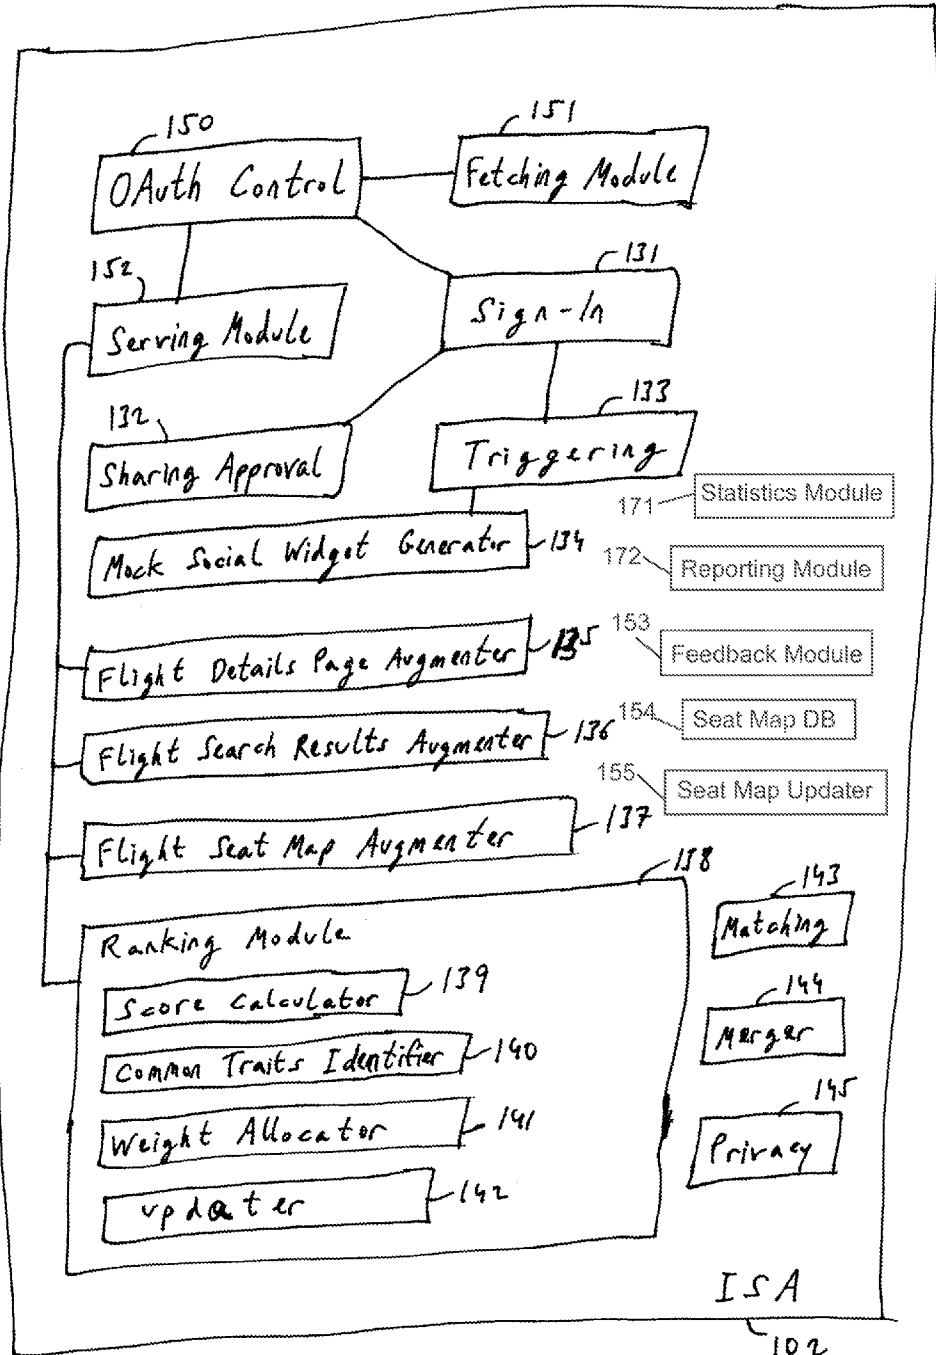 150
OAuth Control
151
Fetching Module
152
Serving Module
131
Sign-In
132
Sharing Approval
133
Triggering
171
Statistics Module
Mock Social Widget Generator
134
172
Reporting Module
153
Feedback Module
Flight Details Page Augmenter
135
154
Seat Map DB
Flight Search Results Augmenter
136
155
Seat Map Updater
Flight Seat Map Augmenter
137
138
Ranking Module
Score Calculator
139
Common Traits Identifier
140
Weight Allocator
141
updater
142
143
Matching
144
Merger
145
Privacy
ISA
102